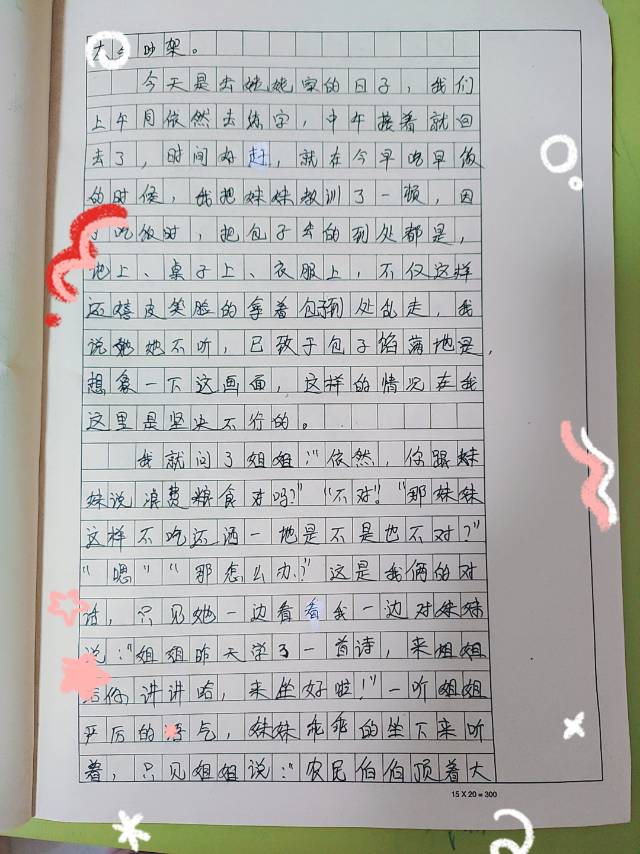 大 吵架。
今天是去姥姥家的日子，我们
上午月依然去练字，中午接着就回
去了，时间好赶，就在今早吃早饭
的时候，我把妹妹教训了一顿，因
吃饭时，把包子弄的到处都是，
地上、桌子上、衣服上，不仅这样
还嬉皮笑脸的拿着包子到处乱走，我
说她她不听，已致于包子馅落地是，
想象一下这画面，这样的情况在我
这里是坚决不行的。
我就问了姐姐：“依然，你跟妹
妹说浪费粮食对吗？”“不对！”“那妹妹
这样不吃还洒一地是不是也不对？”
“嗯”“那怎么办？”这是我俩的对
话，只见她一边看着我一边对妹妹
说：“姐姐昨天学了一首诗，来姐姐
给你讲讲哈，来坐好啦！”一听姐姐
严厉的语气，妹妹乖乖的坐下来听
着，只见姐姐说：“农民伯伯顶着大
15 X 20 = 300